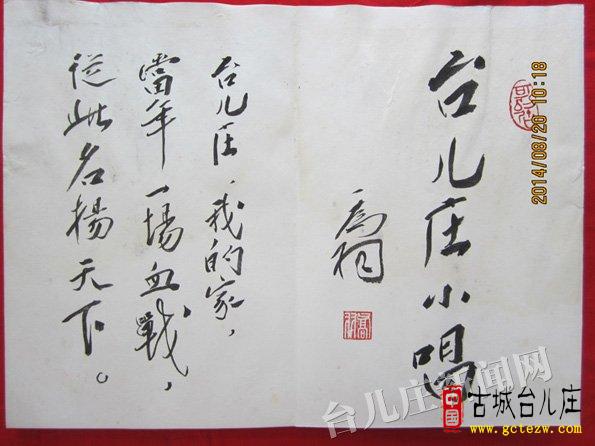 台儿庄小唱
台儿庄，我的家，
當年一場血戰，
從此名揚天下。
2014/08/20 10:18
台儿庄新闻网
中国
古城台儿庄
www.gctezw.com